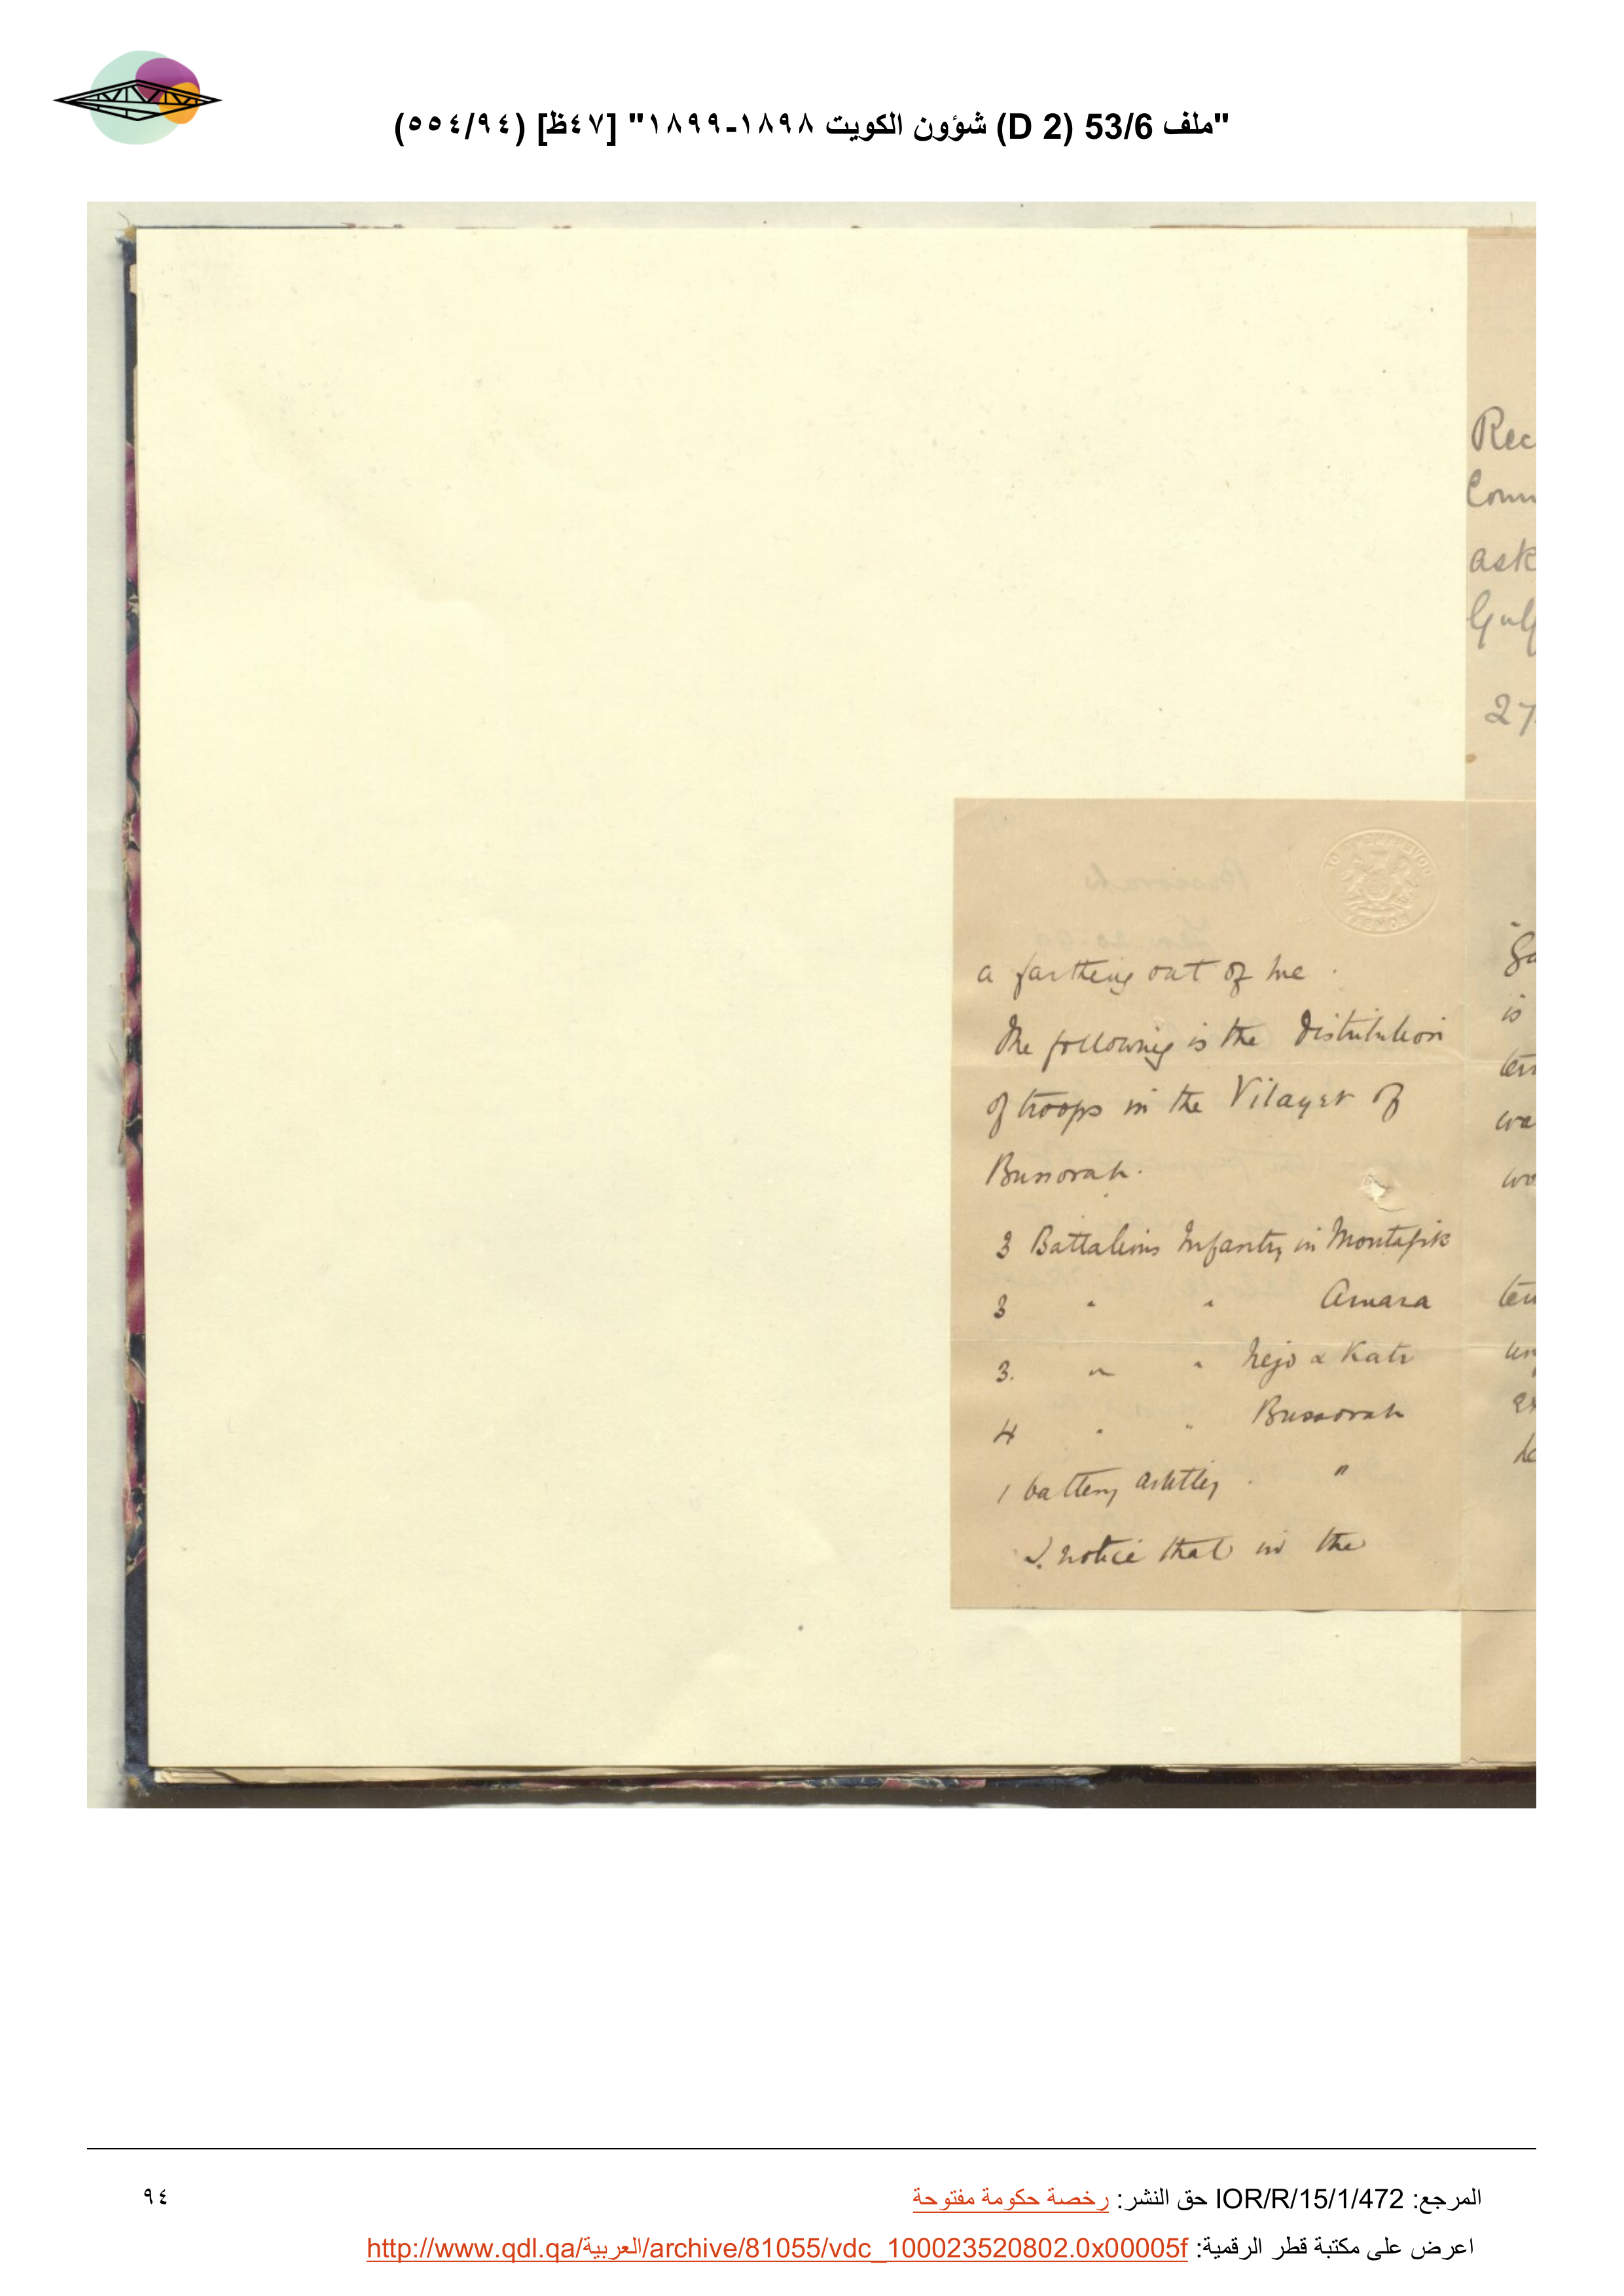 "ملف 53/6 (D 2) شؤون الكويت ١٨٩٨-١٨٩٩" [٤٧ظ] (٥٥٤/٩٤)
Rec
Comm
ask
Gulf
27
GOVERNMENT OF BOMBAY
a farthing out of me.
The following is the Distribution
of troops in the Vilayet of
Bussorah.
3 Battalions Infantry in Montefik
3 " " Amara
3. " " Nejd & Katr
4 " " Bussorah
1 battery artillery . "
I notice that in the
is
ten
wa
wo
ten
un
ex
de
المرجع: IOR/R/15/1/472 حق النشر: رخصة حكومة مفتوحة
٩٤
اعرض على مكتبة قطر الرقمية: http://www.qdl.qa/العربية/archive/81055/vdc_100023520802.0x00005f